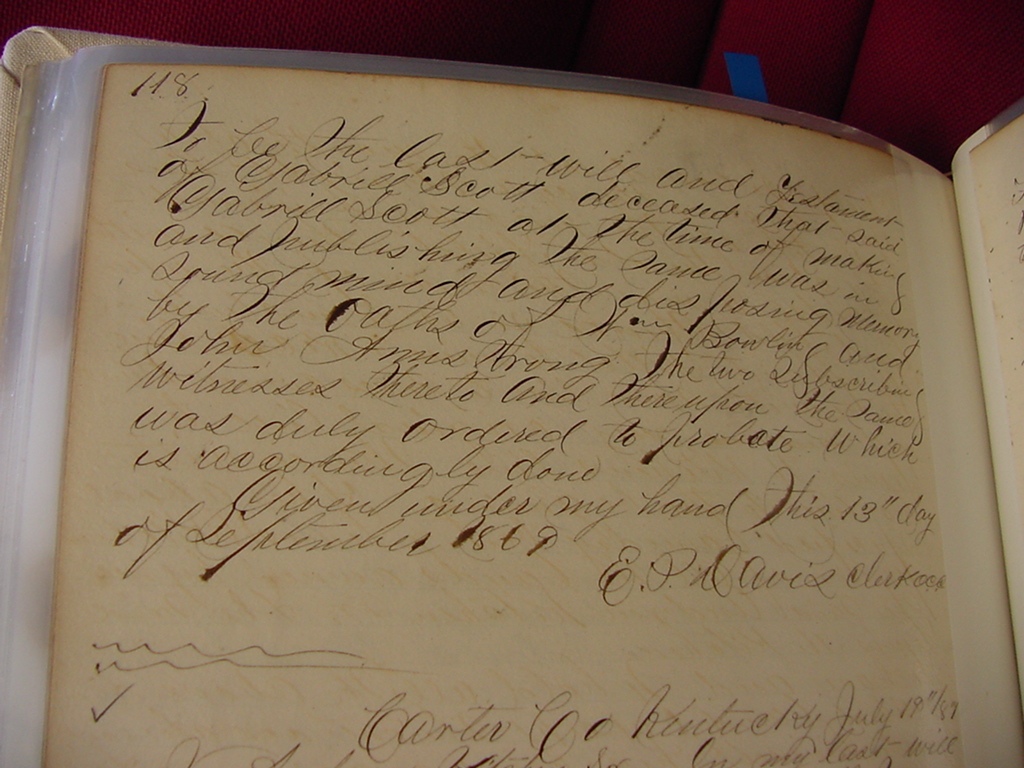 118
To be the last will and Testament
of Gabrill Scott deceased that said
Gabrill Scott at the time of making
and publishing the same was in
sound mind and disposing memory
by the oaths of Wm Bowling and
John Armstrong the two Subscribing
witnesses thereto and thereupon the same
was duly ordered to probate Which
is accordingly done
Given under my hand this 13" day
of September 1869
E. P. Davis Clerk
Carter Co Kentucky July 19"/69
In my last will